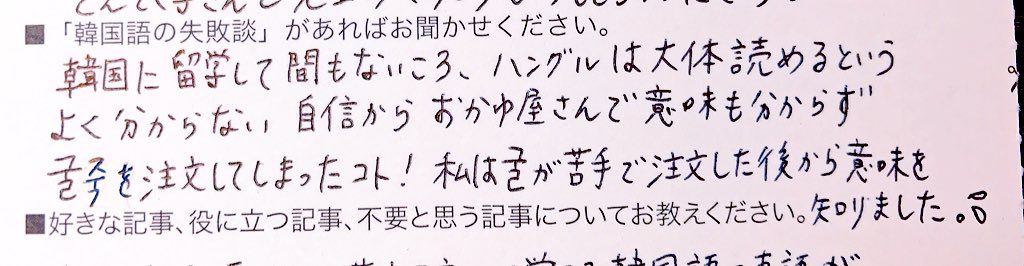 ■「韓国語の失敗談」があればお聞かせください。
韓国に留学して間もないころ、ハングルは大体読めるという
よく分からない自信からおかゆ屋さんで意味も分からず
굴죽を注文してしまったコト！私は굴が苦手で注文した後から意味を
知りました。
■好きな記事、役に立つ記事、不要と思う記事についてお教えください。